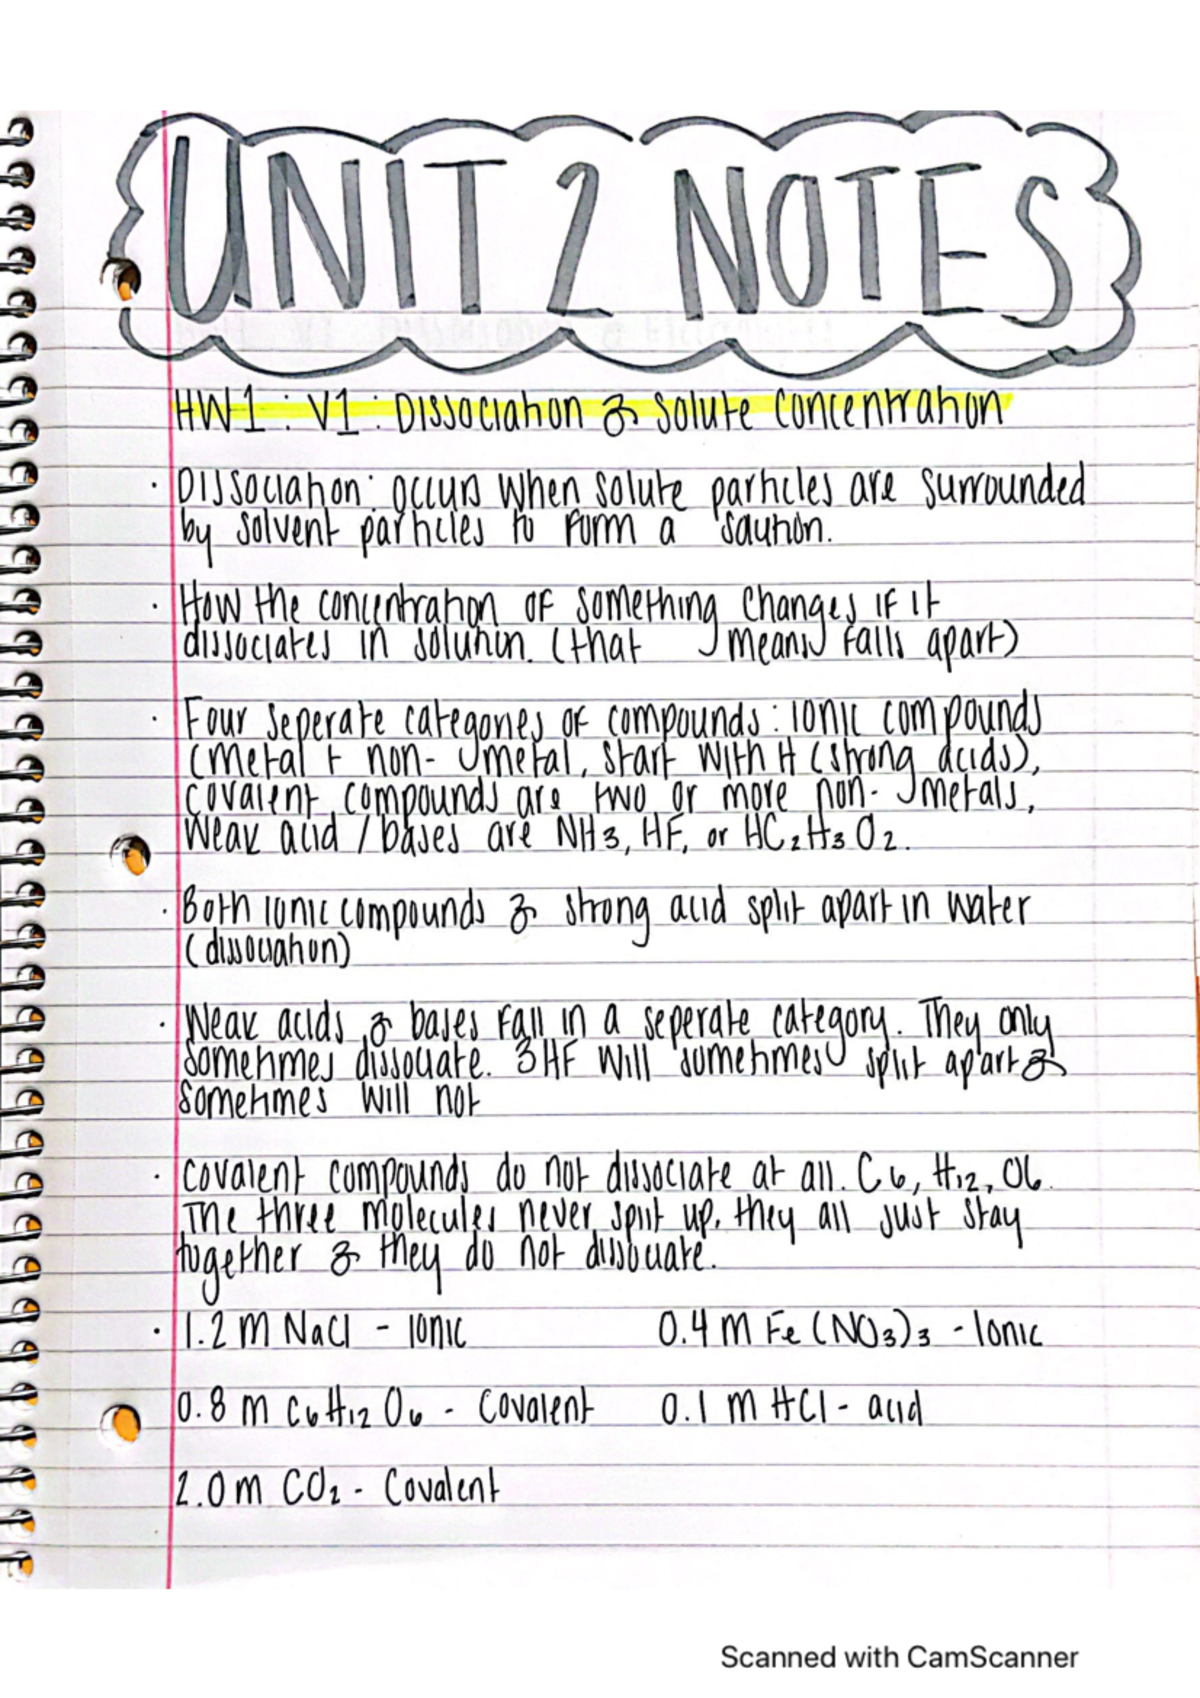 UNIT 2 NOTES
HW1 : V1 : Dissociation & Solute Concentration
· Dissociation: occurs when solute particles are surrounded
by solvent particles to form a saution.
· How the concentration of something changes if it
dissociates in solution. (that means falls apart)
· Four seperate categories of compounds : ionic compounds
(metal + non- metal, start with H (strong acids),
covalent compounds are two or more non- metals,
weak acid / bases are NH3, HF, or HC2H3O2.
· Both ionic compounds & strong acid split apart in water
(dissociation)
· Weak acids & bases fall in a seperate category. They only
sometimes dissociate. 3HF will sometimes split apart &
sometimes will not
· covalent compounds do not dissociate at all. C6, H12, O6.
The three molecules never split up, they all just stay
together & they do not dissociate.
· 1.2 m NaCl - Ionic 0.4 m Fe(NO3)3 - Ionic
0.8 m C6H12O6 - Covalent 0.1 m HCl - acid
2.0 m CO2 - Covalent
Scanned with CamScanner